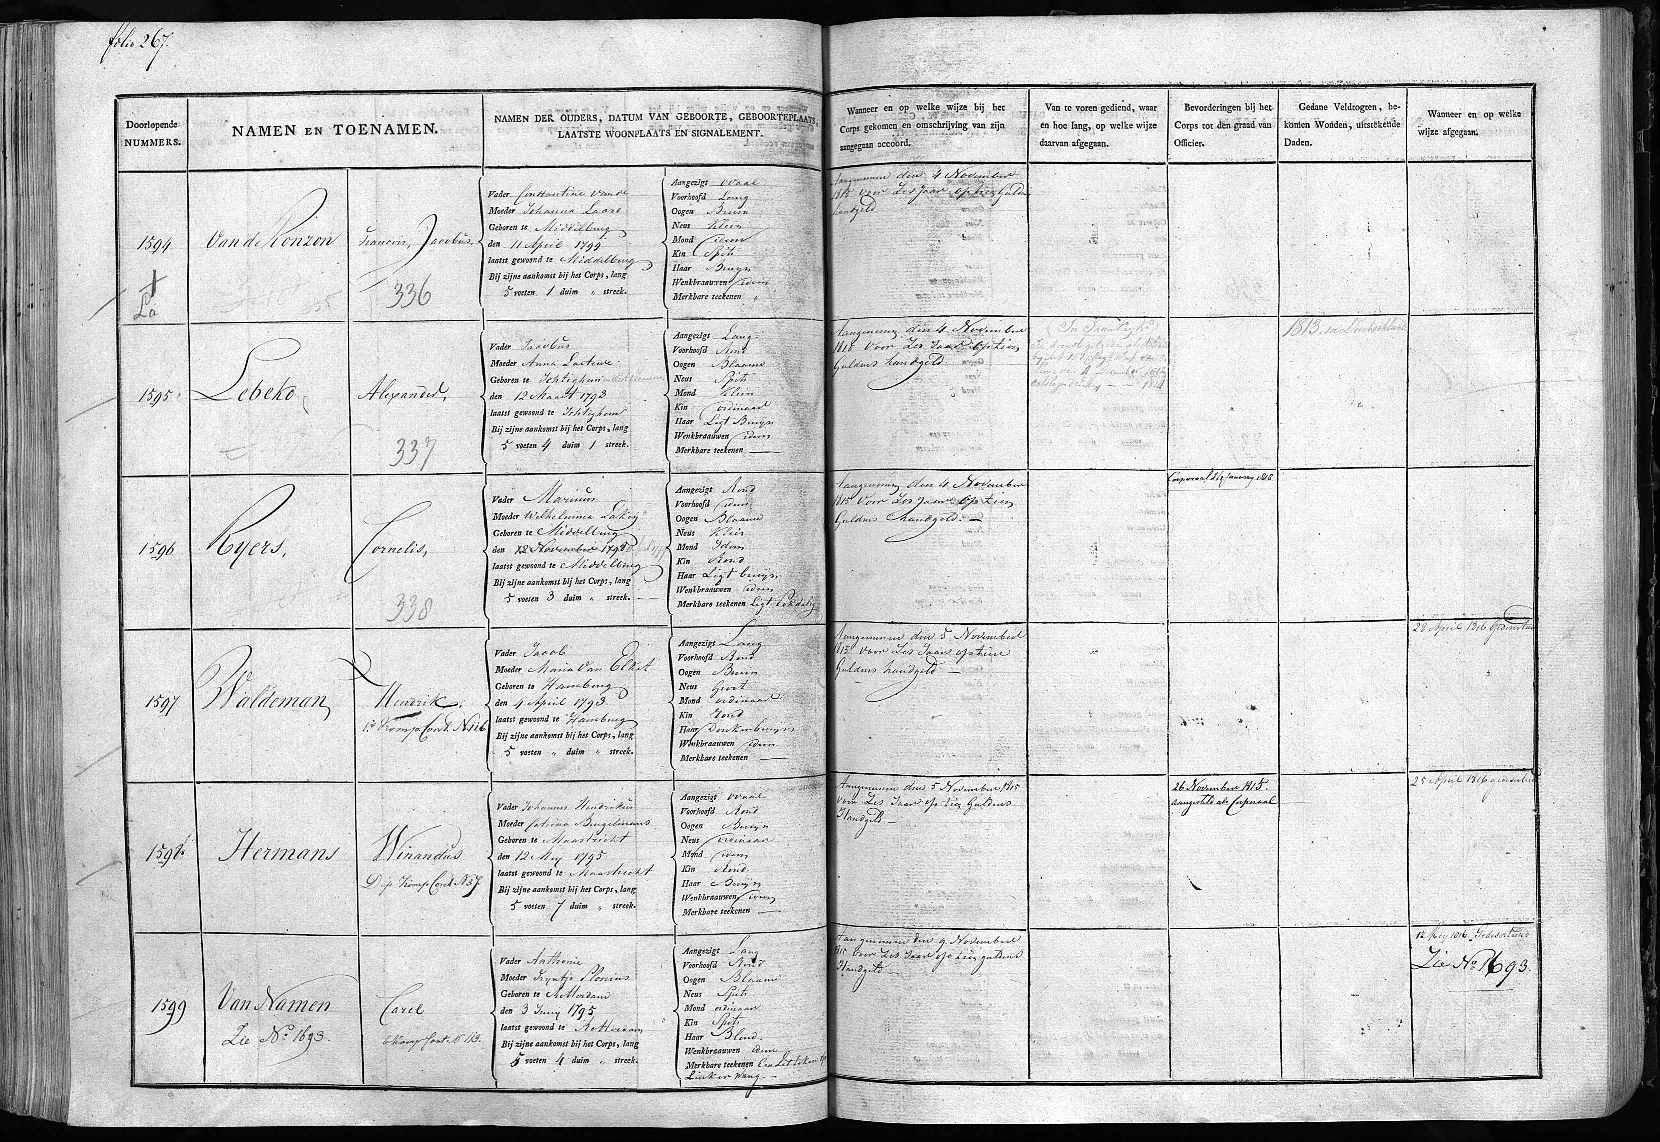 folio 267.
Doorlopende NUMMERS.
NAMEN EN TOENAMEN.
NAMEN DER OUDERS, DATUM VAN GEBOORTE, GEBOORTEPLAATS,
LAATSTE WOONPLAATS EN SIGNALEMENT.
Wanneer en op welke wijze bij het
Corps gekomen en omschrijving van zijn
aangegaan accoord.
Van te voren gediend, waar
en hoe lang, op welke wijze
daarvan afgegaan.
Bevorderingen bij het
Corps tot den graad van
Officier.
Gedane Veldtogten, be-
komen Wonden, uitstekende
Daden.
Wanneer en op welke
wijze afgegaan.
1594
Van de
Jacobus
336
Vader Constantine
Moeder Johanna
Geboren te Middelburg
den 11 April 1799
laatst gewoond te Middelburg
Bij zijne aankomst bij het Corps, lang
5 voeten 1 duim " streek.
Aangezigt Ovaal
Voorhoofd Laag
Oogen Bruin
Neus Klein
Mond idem
Kin Spits
Haar Bruijn
Wenkbraauwen idem
Merkbare teekenen "
Aangenomen den 4 November
1815 voor Zes Jaar op tien Gulden
handgeld
1595
Lebeko
Alexander,
337
Vader Jacobus
Moeder Anna
Geboren te
den 12 Maart 1793
laatst gewoond te
Bij zijne aankomst bij het Corps, lang
5 voeten 4 duim 1 streek.
Aangezigt Lang
Voorhoofd Rond
Oogen Blaauw
Neus Spits
Mond Klein
Kin ordinaar
Haar Ligt Bruijn
Wenkbraauwen idem
Merkbare teekenen —
Aangenomen den 4 November
1815 voor Zes Jaar op tien
Guldens handgeld
1813
1596
Ryers,
Cornelis,
338
Vader Marinus
Moeder Wilhelmina
Geboren te Middelburg
den 12 November
laatst gewoond te Middelburg
Bij zijne aankomst bij het Corps, lang
5 voeten 3 duim " streek.
Aangezigt Rond
Voorhoofd idem
Oogen Blaauw
Neus Klein
Mond Idem
Kin Rond
Haar Ligt bruijn
Wenkbraauwen idem
Merkbare teekenen Ligt Pokdalig
Aangenomen den 4 November
1815 voor Zes Jaar op tien
Guldens handgeld. —
Corporaal
1597
Waldeman
Hendrik.
Vader Jacob
Moeder Maria Van Elkst
Geboren te Hamburg
den 4 April 1793
laatst gewoond te Hamburg
Bij zijne aankomst bij het Corps, lang
5 voeten " duim " streek.
Aangezigt Lang
Voorhoofd Rond
Oogen Bruin
Neus Groot
Mond ordinaar
Kin Rond
Haar Donkerbruijn
Wenkbraauwen idem
Merkbare teekenen —
Aangenomen den 5 November
1815 voor Zes Jaar op tien
Guldens handgeld. —
April 1816 Gedeserteerd
1598
Hermans
Winandus
Vader Johannes Hendrikus
Moeder Catrina
Geboren te Maastricht
den 12 Mey 1795
laatst gewoond te Maastricht
Bij zijne aankomst bij het Corps, lang
5 voeten 7 duim " streek.
Aangezigt Ovaal
Voorhoofd Rond
Oogen Bruijn
Neus ordinaar
Mond idem
Kin Rond
Haar Bruijn
Wenkbraauwen idem
Merkbare teekenen —
Aangenomen den 5 November 1815
voor Zes Jaar op tien Guldens
Handgeld —
26 November 1815.
aangesteld als Corporaal
25 April 1816 gedeserteerd
1599
Van Namen
Zie No. 1693.
Carel
Vader Anthonie
Moeder
Geboren te Rotterdam
den 3 Juny 1795
laatst gewoond te Rotterdam
Bij zijne aankomst bij het Corps, lang
5 voeten 4 duim " streek.
Aangezigt Lang
Voorhoofd Rond
Oogen Blaauw
Neus Spits
Mond ordinaar
Kin Spits
Haar Blond
Wenkbraauwen idem
Merkbare teekenen
Linker Wang —
Aangenomen den 9 November
1815 voor Zes Jaar op tien guldens
Handgeld
12 Mey 1816 Gedeserteerd
Zie No. 1693.